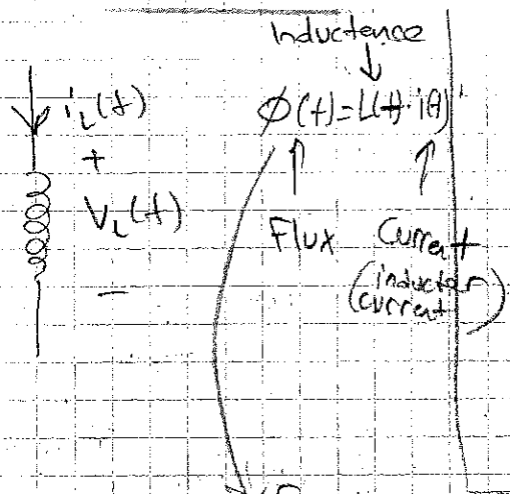 Inductence
i_L(t)
φ(t)=L(t)·i(t)
+
V_L(t)
Flux
Current
(inductor
current)
−